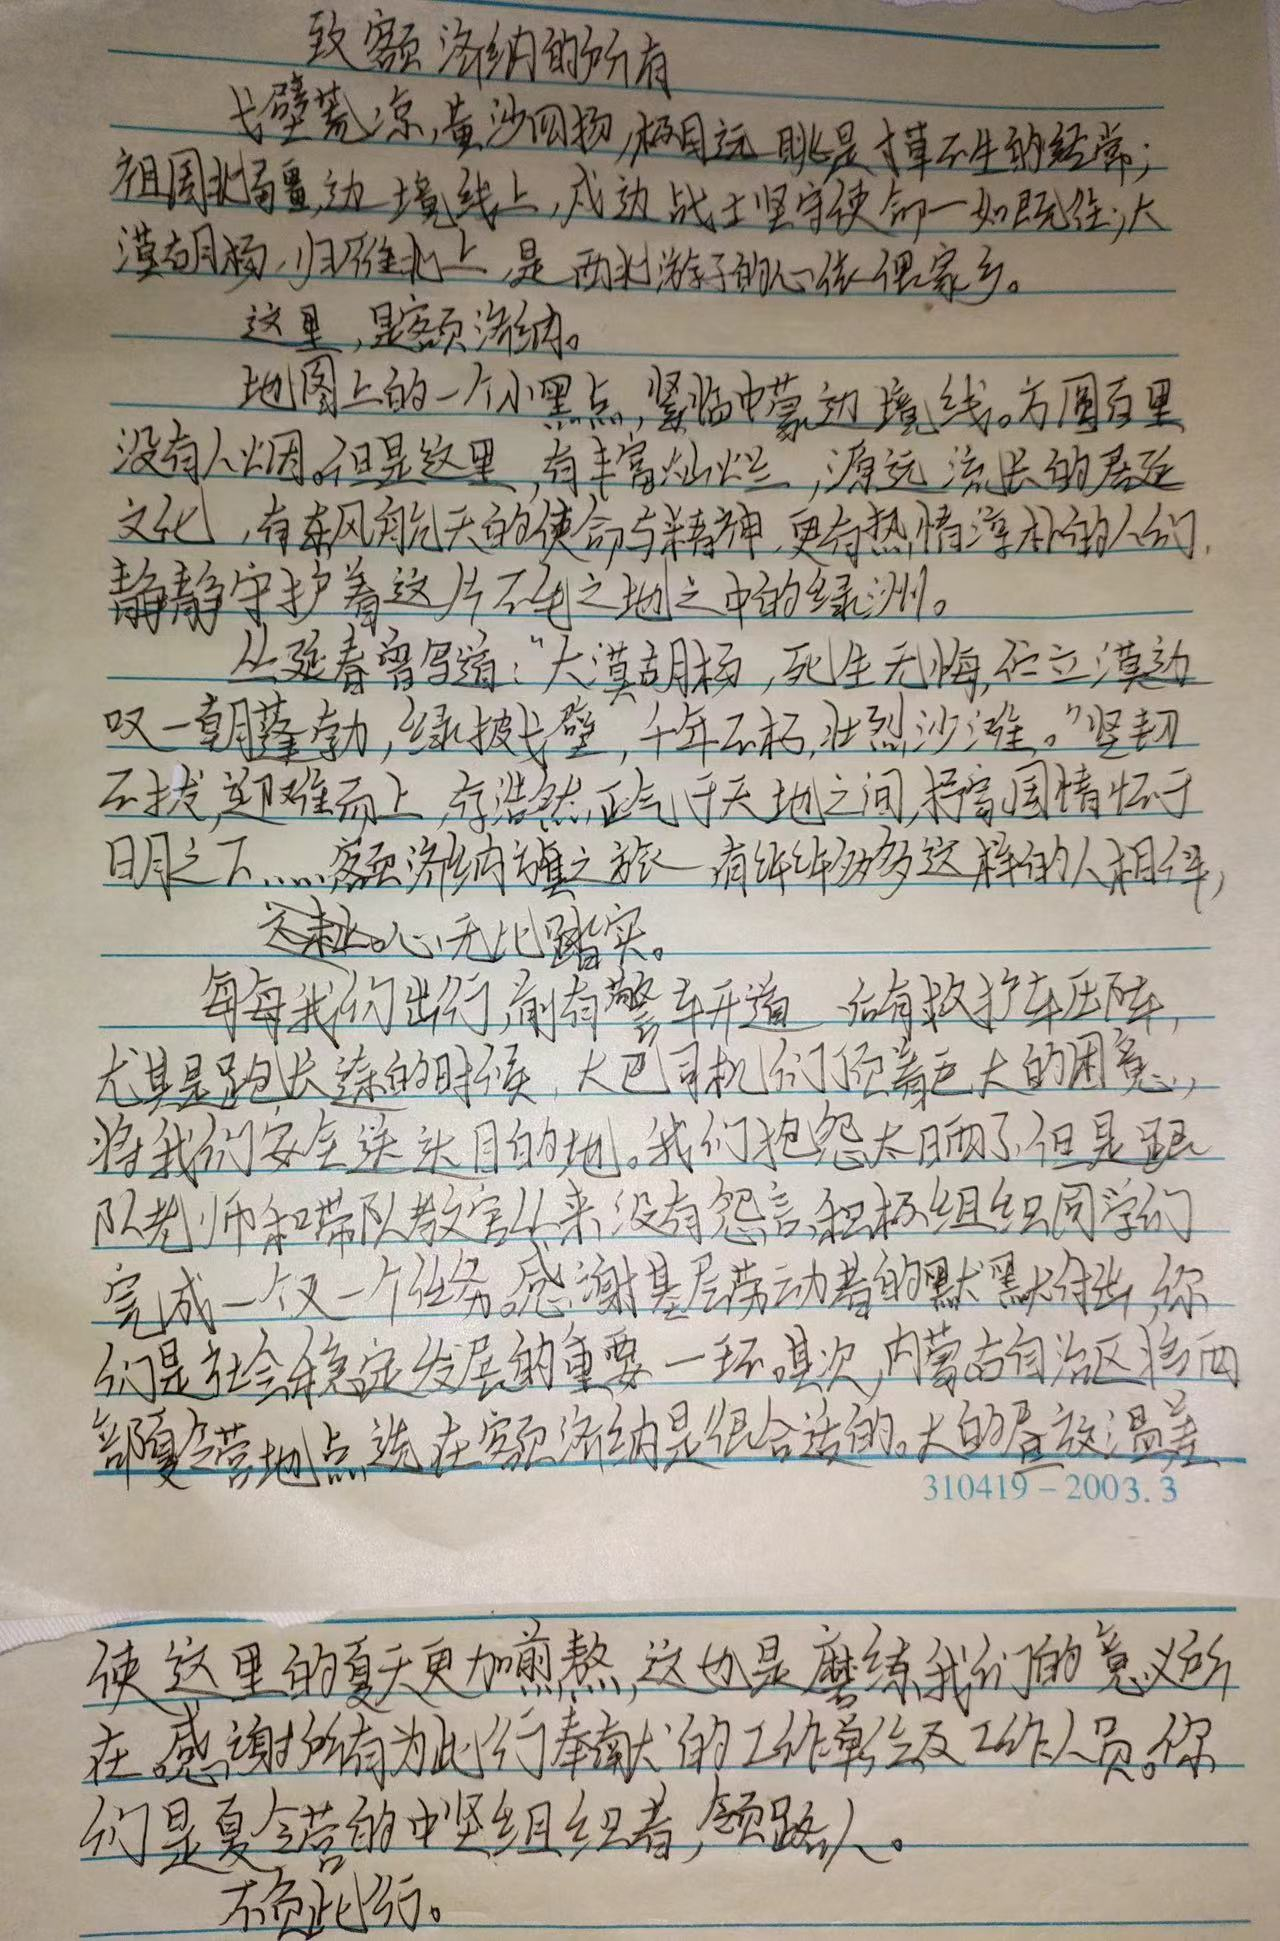 致额济纳的所有
戈壁荒凉,黄沙四扬,极目远眺是寸草不生的经常;
祖国北疆,边境线上,戍边战士坚守使命一如既往;大
漠胡杨,归雁北上,是西北游子的心依偎家乡。
这里,是额济纳。
地图上的一个小黑点,紧临中蒙边境线。方圆百里
没有人烟。但是这里,有丰富灿烂,源远流长的居延
文化,有东风航天的使命与精神,更有热情淳朴的人们,
静静守护着这片不毛之地之中的绿洲。
丛延春曾写道:“大漠胡杨,死生无悔,伫立漠边
叹一朝蓬勃,绿披戈壁,千年不朽,壮烈沙滩。”坚韧
不拔,迎难而上,存浩然正气于天地之间,捋家国情怀于
日月之下……额济纳旗之旅一有许许多多这样的人相伴,
心无比踏实。
每每我们出行,前有警车开道,后有救护车压阵,
尤其是跑长途的时候,大巴司机们顶着巨大的困意,
将我们安全送达目的地。我们抱怨太晒了,但是跟
队老师和带队教官从来没有怨言,积极组织同学们
完成一个又一个任务。感谢基层劳动者的默默付出,你
们是社会稳定发展的重要一环。其次,内蒙古自治区将西
部夏令营地点选在额济纳是很合适的。大的昼夜温差
310419-2003.3
使这里的夏天更加煎熬,这也是磨练我们的意义所
在。感谢所有为此行奉献的工作单位及工作人员。你
们是夏令营的中坚组织者,领路人。
不负此行。